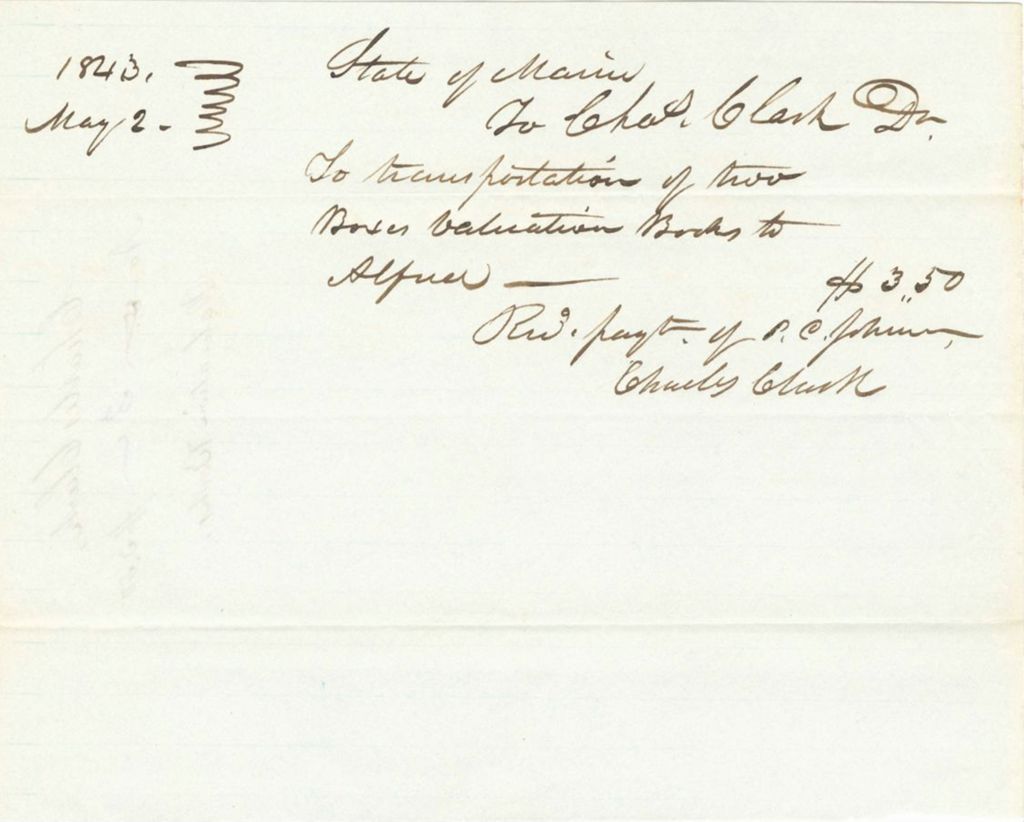 1843. State of Maine
May 2. To Chas. Clark Dr.
To transportation of two
Boxes Valuation Books to
Alfred — $3,,50
Recd. payt. of P. C. Johnson,
Charles Clark